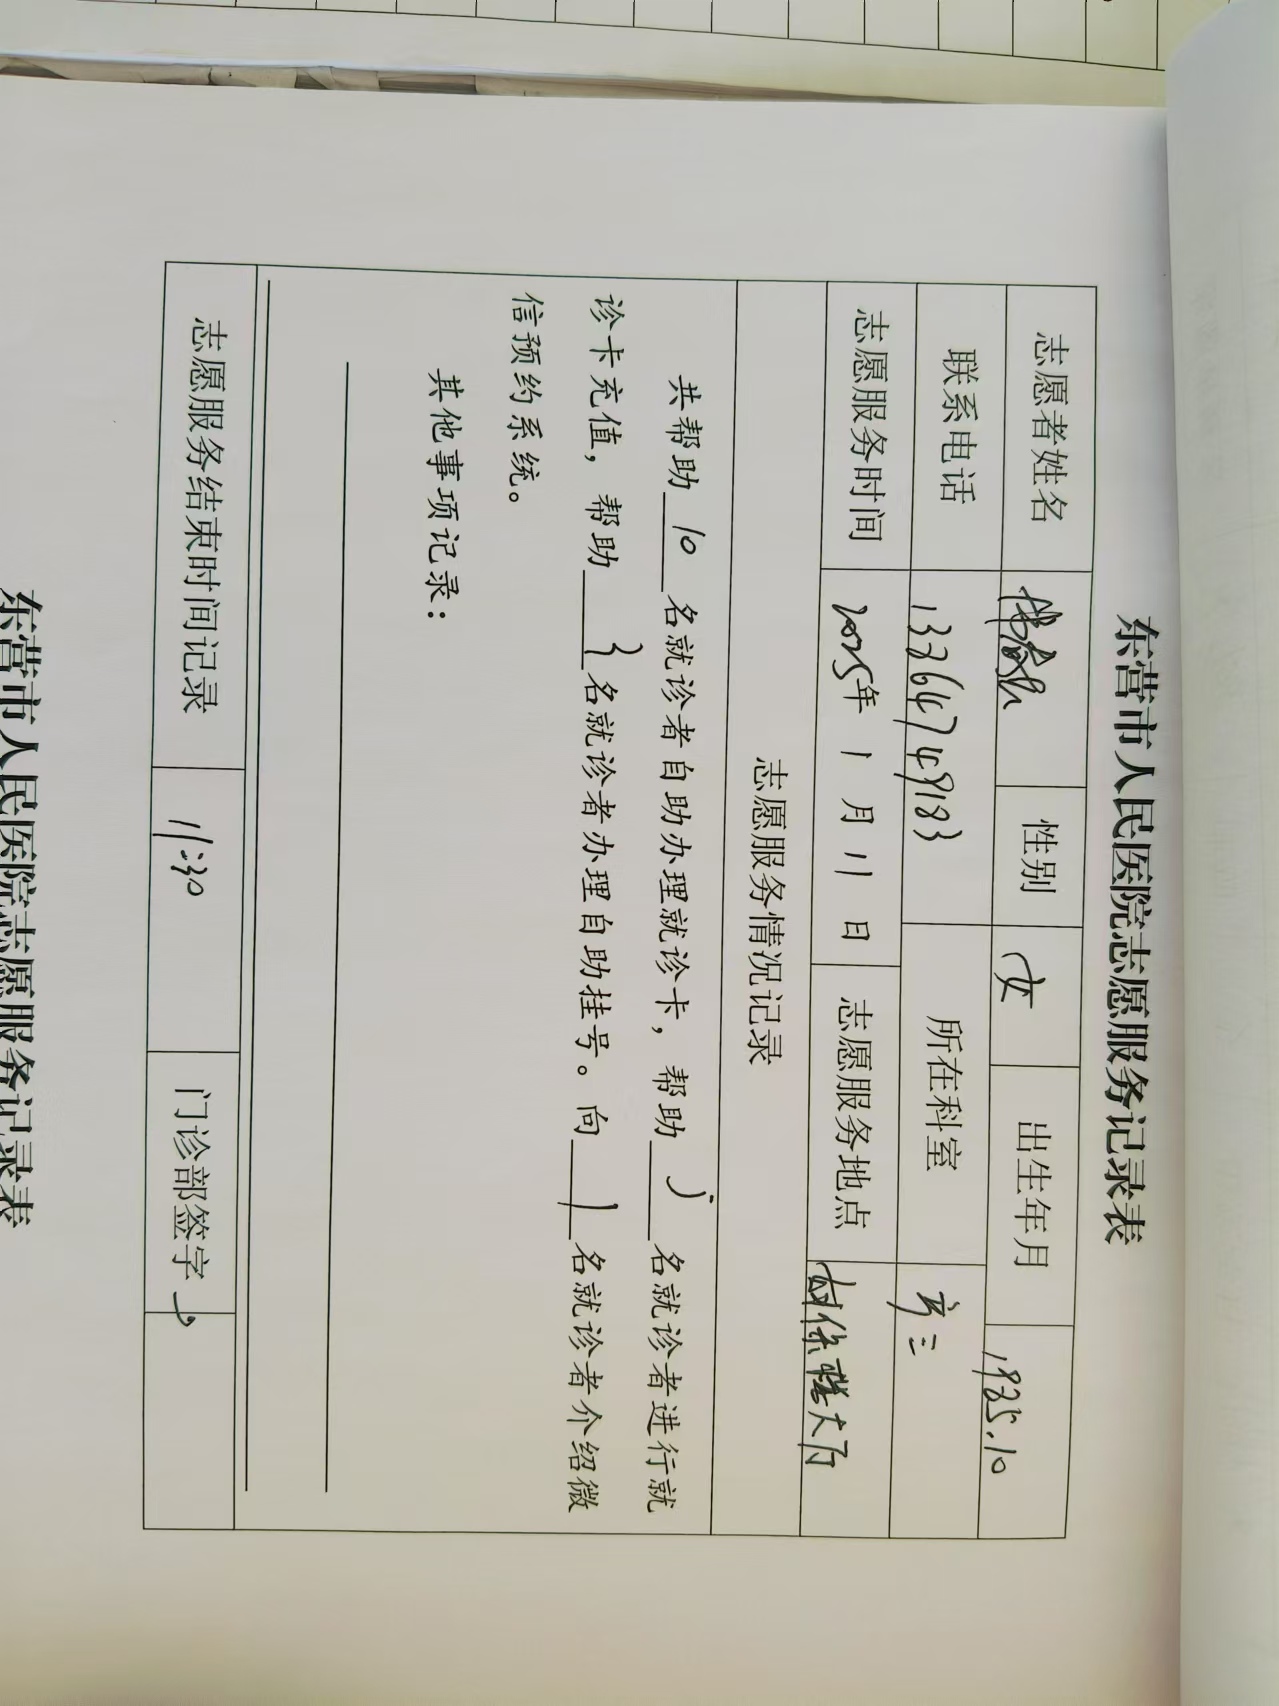 东营市人民医院志愿服务记录表
志愿者姓名 性别 女 出生年月 1985.10
联系电话 13364749183 所在科室
志愿服务时间 2025年 1 月 11 日 志愿服务地点 大厅
志愿服务情况记录
共帮助 10 名就诊者自助办理就诊卡，帮助 5 名就诊者进行就
诊卡充值，帮助 3 名就诊者办理自助挂号。向 1 名就诊者介绍微
信预约系统。
其他事项记录：
志愿服务结束时间记录 11:30 门诊部签字
东营市人民医院志愿服务记录表